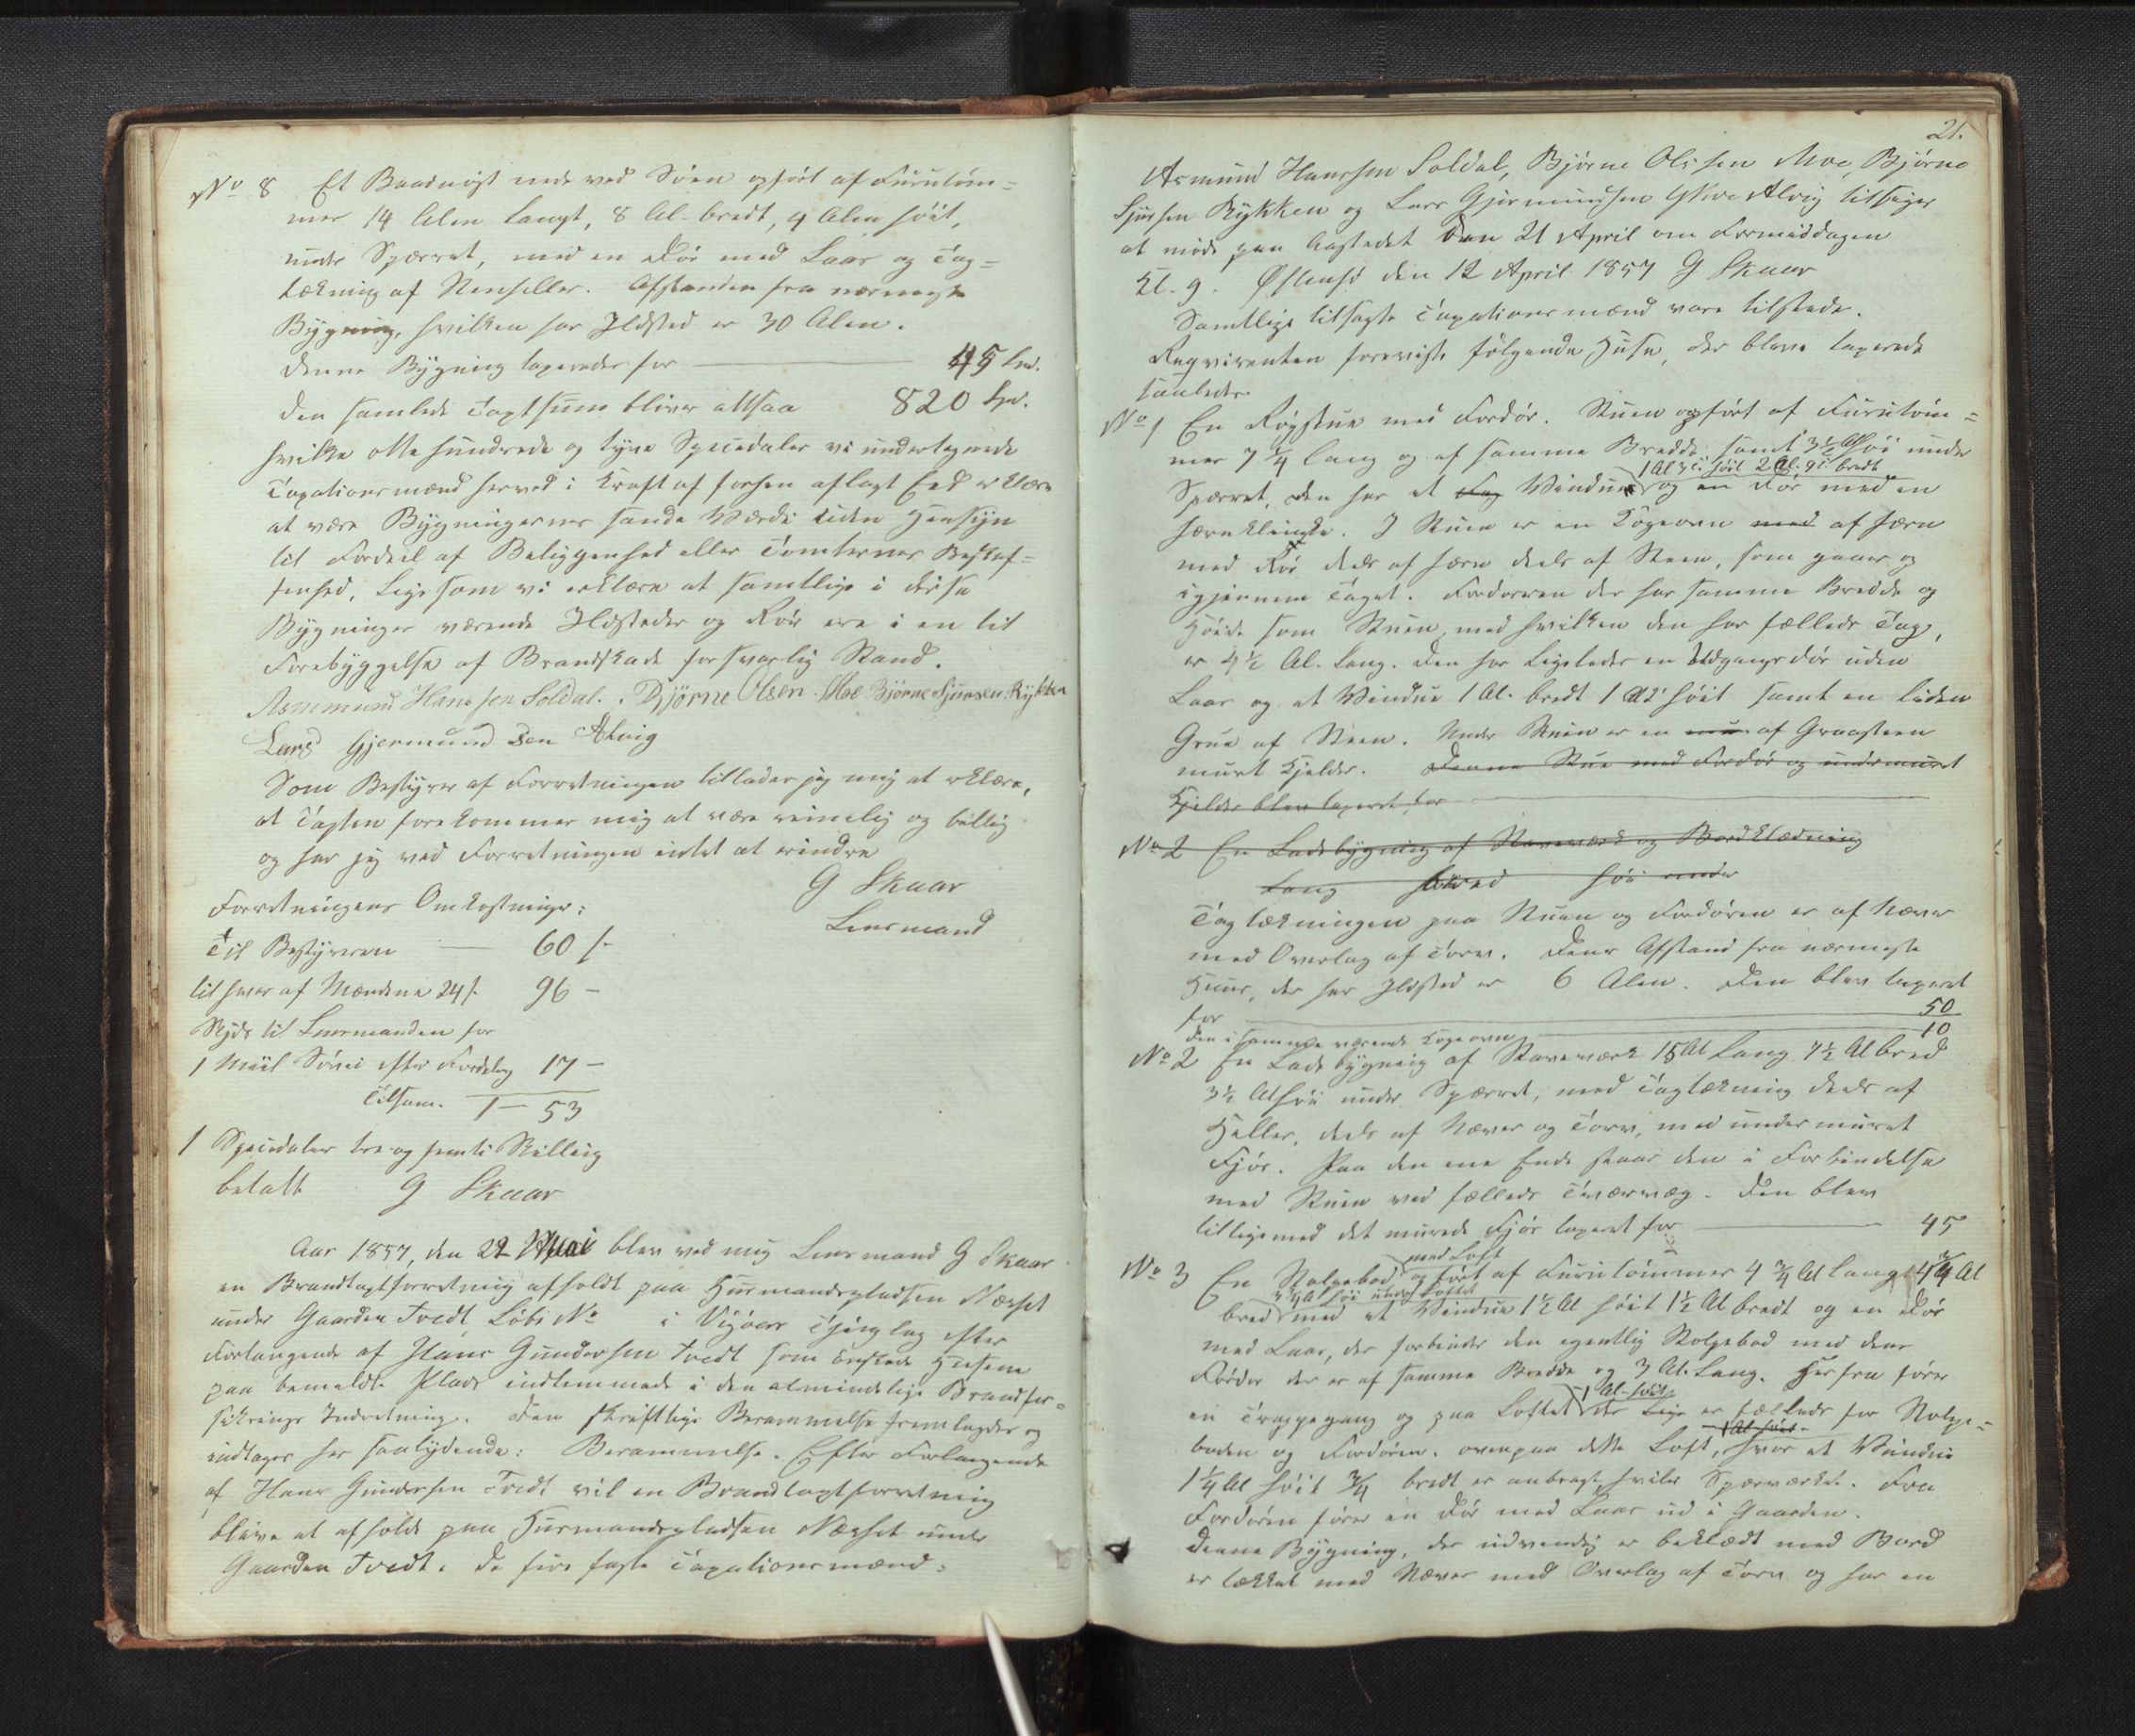 No 8 Et Baadnøst nede ved Søen opført af Furutøm=
mer 14 Alen langt, 8 Al. bredt, 4 Alen høit,
under Spærret, med en Dør med Laas og Tag=
tækning af Steenheller. Afstanden fra nærmeste
Bygning, hvilken har Ildsted er 30 Alen.
Denne Bygning taxeredes for 45 Spd.
Den samlede Taxtsum bliver altsaa 820 Spd.
hvilke otte hundrede og tyve Speciedaler vi undertegnede
Taxationsmænd herved i Kraft af forhen aflagt Eed erklære
at være Bygningernes sande Værdi uden Hensyn
til Fordeel af Beliggenhed eller Tomternes Beskaf=
fenhed, Ligesom vi erklære at samtlige i disse
Bygninger værende Ildsteder og Rør ere i en til
Forebyggelse af Brandskade forsvarlig Stand.
Asmmund Hanssen Soldal. Bjørne Olsen Moe Bjørne Sjursen Rykken
Lars Gjermundsen Alvig
Som Bestyrer af Forretningen tillader jeg mig at erklære,
at Taxten forekommer mig at være rimelig og billig
og har jeg ved Forretningen intet at erindre
G Skaar
Lensmand
Forretningens Omkostninger:
Til Bestyreren 60 s.
til hver af Mændene 24 s. 96 -
Skyds til Lensmanden for
1 Miil Søvei efter Fordeling 17 -
Tilsam. 1 - 53
1 Speciedaler tre og femti Skilling
betalt G Skaar
Aar 1857, den 22 Mai blev ved mig Lensmand G Skaar
en Brandtaxtforretning afholdt paa Huusmandspladsen Næset
under Gaarden Tvedt, Løbe No i Vigøers Thinglag efter
Forlangende af Hans Gundersen Tvedt som ønskede Husene
paa bemeldte Plads indlemmede i den almindelige Brandfor=
sikrings Indretning. Den skriftlige Berammelse fremlagdes og
indtages her saalydende: Berammelse. Efter Forlangende
af Hans Gundersen Tvedt vil en Brandtaxtforretning
blive at afholde paa Huusmandspladsen Næset under
Gaarden Tvedt. De fire faste Taxationsmænd:
21.
Asmund Hanssen Soldal, Bjørne Olssen Moe, Bjørne
Sjursen Rykken og Lars Gjermundsen Alvig tilsiges
at møde paa Aastedet Den 21 April om Formiddagen
Kl. 9. Østensø den 12 April 1857 G Skaar
Samtlige tilsagte Taxationsmænd vare tilstede.
Reqvirenten foreviste følgende Huse, der bleve taxerede
saaledes
No 1 En Røgstue med Fordør. Stuen opført af Furutøm=
mer 7 1/4 lang og af samme Bredde samt 3 1/2 Al høi under
1 Al 3" høit 2 Al. 9" bredt
Spærret, den har et Fag Vindue og en Dør med en
Jærnklinke. I Stuen er en Kogeovn med af Jærn
med Rør deels af Jærn deels af Steen, som gaaer op
igjennem Taget. Fordøren der har samme Bredde og
Høide som Stuen, med hvilken den har fælleds Tag,
er 4 1/2 Al. lang. Den har ligeledes en Udgangsdør uden
Laas og et Vindue 1 Al. bredt 1 Al høit samt en liden
Grue af Steen. Under Stuen er en af Graasteen
muret Kjelder. Denne Stue med Fordør og undermuret
Kjelder blev taxeret for
No 2 En Ladebygning af Staveværk og Bordklædning
Lang bred høi under
Tagtækningen paa Stuen og Fordøren er af Næver
med Overlag af Torv. Dens Afstand fra nærmeste
Huus, der har Ildsted er 6 Alen. Den blev taxeret
for 50
Den i samme værende Kogeovn 10
No 2 En Ladebygning af Staveværk 15 Al lang 7 1/2 Al bred
3 1/2 Al høi under Spærret, med Tagtækning deels af
Heller, deels af Næver og Torv, med undermuret
Fjøs. Paa den ene Ende staar den i Forbindelse
med Stuen ved fælleds Tværvæg. Den blev
tilligemed det murede Fjøs taxeret for 45
med Loft
No 3 En Stolpebod opført af Furutømmer 4 3/4 Al lang 4 3/4 Al
3 1/4 Al høi under Loftet
bred med et Vindue 1 1/2 Al høit 1 1/2 Al bredt og en Dør
med Laas, der forbinder den egentlig Stolpebod med dens
Fordør der er af samme Bredde og 3 Al. lang. Herfra fører
1 Al. høit
en Trappegang op paa Loftet der lige er fælleds for Stolpe=
1 Al høit
boden og Fordøren. ovenpaa dette Loft, hvor et Vindue
1 1/4 Al høit 3/4 bredt er anbragt hviler Spærværket. Fra
Fordøren fører en Dør med Laas ud i Gaarden.
Denne Bygning, der udvendig er beklædt med Bord
er tækket med Næver med Overlag af Torv og har en